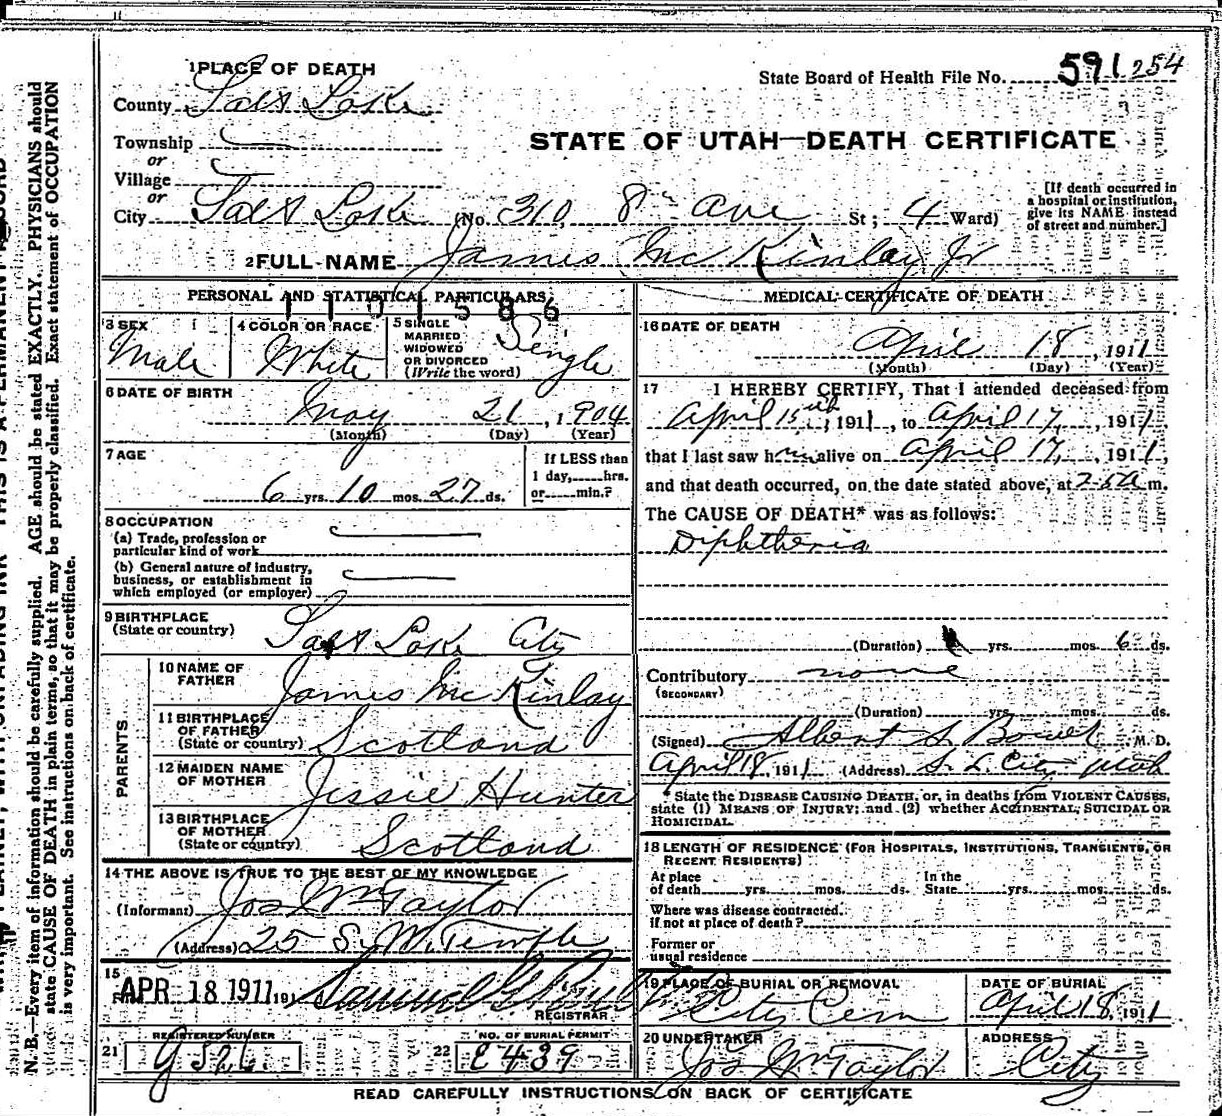 1 PLACE OF DEATH
State Board of Health File No. 591 254
County Salt Lake
STATE OF UTAH—DEATH CERTIFICATE
Township
or
Village
or
City Salt Lake (No. 310, 8th Ave St; 4 Ward)
[If death occurred in
a hospital or institution,
give its NAME instead
of street and number.]
2 FULL NAME James McKinlay Jr
PERSONAL AND STATISTICAL PARTICULARS
1101586
3 SEX
Male
4 COLOR OR RACE
White
5 SINGLE
MARRIED
WIDOWED
OR DIVORCED
(Write the word)
Single
6 DATE OF BIRTH
May 21, 1904
(Month) (Day) (Year)
7 AGE
6 yrs. 10 mos. 27 ds.
If LESS than
1 day,......hrs.
or......min.?
8 OCCUPATION
(a) Trade, profession or
particular kind of work
(b) General nature of industry,
business, or establishment in
which employed (or employer)
9 BIRTHPLACE
(State or country)
Salt Lake City
PARENTS
10 NAME OF
FATHER
James McKinlay
11 BIRTHPLACE
OF FATHER
(State or country) Scotland
12 MAIDEN NAME
OF MOTHER
Jessie Hunter
13 BIRTHPLACE
OF MOTHER
(State or country) Scotland
14 THE ABOVE IS TRUE TO THE BEST OF MY KNOWLEDGE
(Informant) Jos Wm Taylor
(Address) 25 S. W. Temple
15
APR 18 1911 191
Samuel G.
REGISTRAR
REGISTERED NUMBER
21
NO. OF BURIAL PERMIT
22 E439
MEDICAL CERTIFICATE OF DEATH
16 DATE OF DEATH
April 18, 1911
(Month) (Day) (Year)
17 I HEREBY CERTIFY, That I attended deceased from
April 15th, 1911, to April 17, 1911
that I last saw him alive on April 17, 1911,
and that death occurred, on the date stated above, at m.
The CAUSE OF DEATH* was as follows:
Diphtheria
(Duration) yrs. mos. 6 ds.
Contributory none
(SECONDARY)
(Duration) yrs. mos. ds.
(Signed) Albert S. M. D.
April 18, 1911 (Address) S. L. City Utah
*State the DISEASE CAUSING DEATH, or, in deaths from VIOLENT CAUSES,
state (1) MEANS OF INJURY; and (2) whether ACCIDENTAL, SUICIDAL OR
HOMICIDAL.
18 LENGTH OF RESIDENCE (FOR HOSPITALS, INSTITUTIONS, TRANSIENTS, OR
RECENT RESIDENTS)
At place
of death yrs. mos. ds.
In the
State yrs. mos. ds.
Where was disease contracted,
if not at place of death?
Former or
usual residence
19 PLACE OF BURIAL OR REMOVAL
City Cem
DATE OF BURIAL
April 18, 1911
20 UNDERTAKER
Jos Wm Taylor
ADDRESS
City
READ CAREFULLY INSTRUCTIONS ON BACK OF CERTIFICATE
N. B.—Every item of information should be carefully supplied. AGE should be stated EXACTLY. PHYSICIANS should
state CAUSE OF DEATH in plain terms, so that it may be properly classified. Exact statement of OCCUPATION
is very important. See instructions on back of certificate.